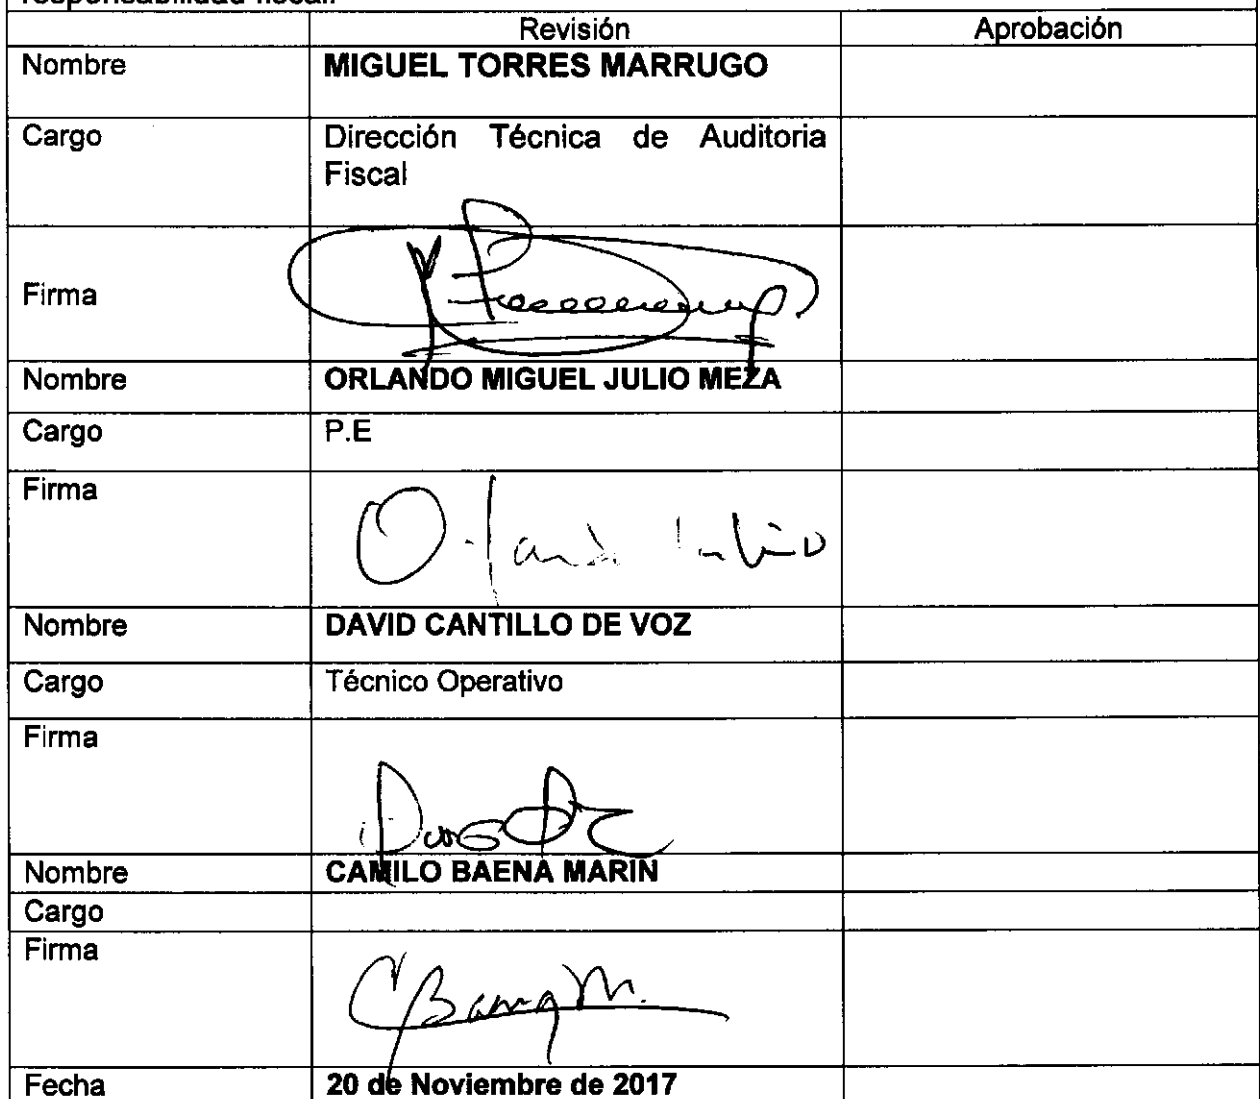 responsabilidad fiscal.
Revisión Aprobación
Nombre MIGUEL TORRES MARRUGO
Cargo Dirección Técnica de Auditoria
Fiscal
Firma
Nombre ORLANDO MIGUEL JULIO MEZA
Cargo P.E
Firma Orlando Julio
Nombre DAVID CANTILLO DE VOZ
Cargo Técnico Operativo
Firma
Nombre CAMILO BAENA MARIN
Cargo
Firma CBaenaM.
Fecha 20 de Noviembre de 2017